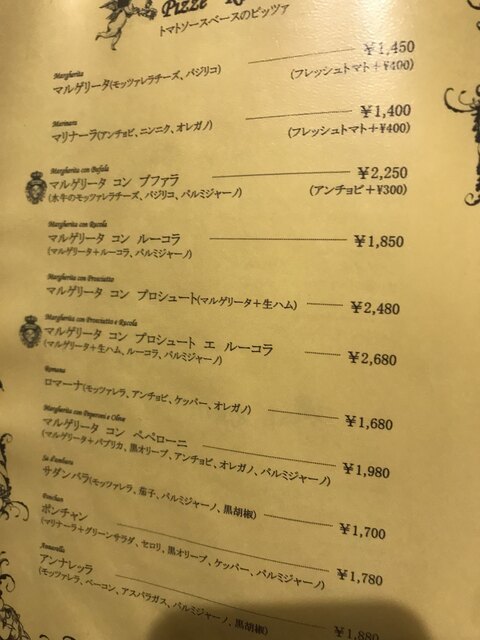 Pizze
トマトソースベースのピッツァ
Margherita
マルゲリータ(モッツァレラチーズ、バジリコ) ¥1,450
(フレッシュトマト+¥400)
Marinara
マリナーラ(アンチョビ、ニンニク、オレガノ) ¥1,400
(フレッシュトマト+¥400)
Margherita con Bufala
マルゲリータ コン ブファラ ¥2,250
(水牛のモッツァレラチーズ、バジリコ、パルミジャーノ) (アンチョビ+¥300)
Margherita con Rucola
マルゲリータ コン ルーコラ ¥1,850
(マルゲリータ+ルーコラ、パルミジャーノ)
Margherita con Prosciutto
マルゲリータ コン プロシュート(マルゲリータ+生ハム) ¥2,480
Margherita con Prosciutto e Rucola
マルゲリータ コン プロシュート エ ルーコラ ¥2,680
(マルゲリータ+生ハム、ルーコラ、パルミジャーノ)
Romana
ロマーナ(モッツァレラ、アンチョビ、ケッパー、オレガノ) ¥1,680
Margherita con Peperoni e Olive
マルゲリータ コン ペペローニ ¥1,980
(マルゲリータ+パプリカ、黒オリーブ、アンチョビ、オレガノ、パルミジャーノ)
サダンバラ(モッツァレラ、茄子、パルミジャーノ、黒胡椒) ¥1,700
Ponchan
ポンチャン ¥1,780
(マリナーラ+グリーンサラダ、セロリ、黒オリーブ、ケッパー、パルミジャーノ)
Annarella
アンナレッラ ¥1,880
(モッツァレラ、ベーコン、アスパラガス、パルミジャーノ、黒胡椒)